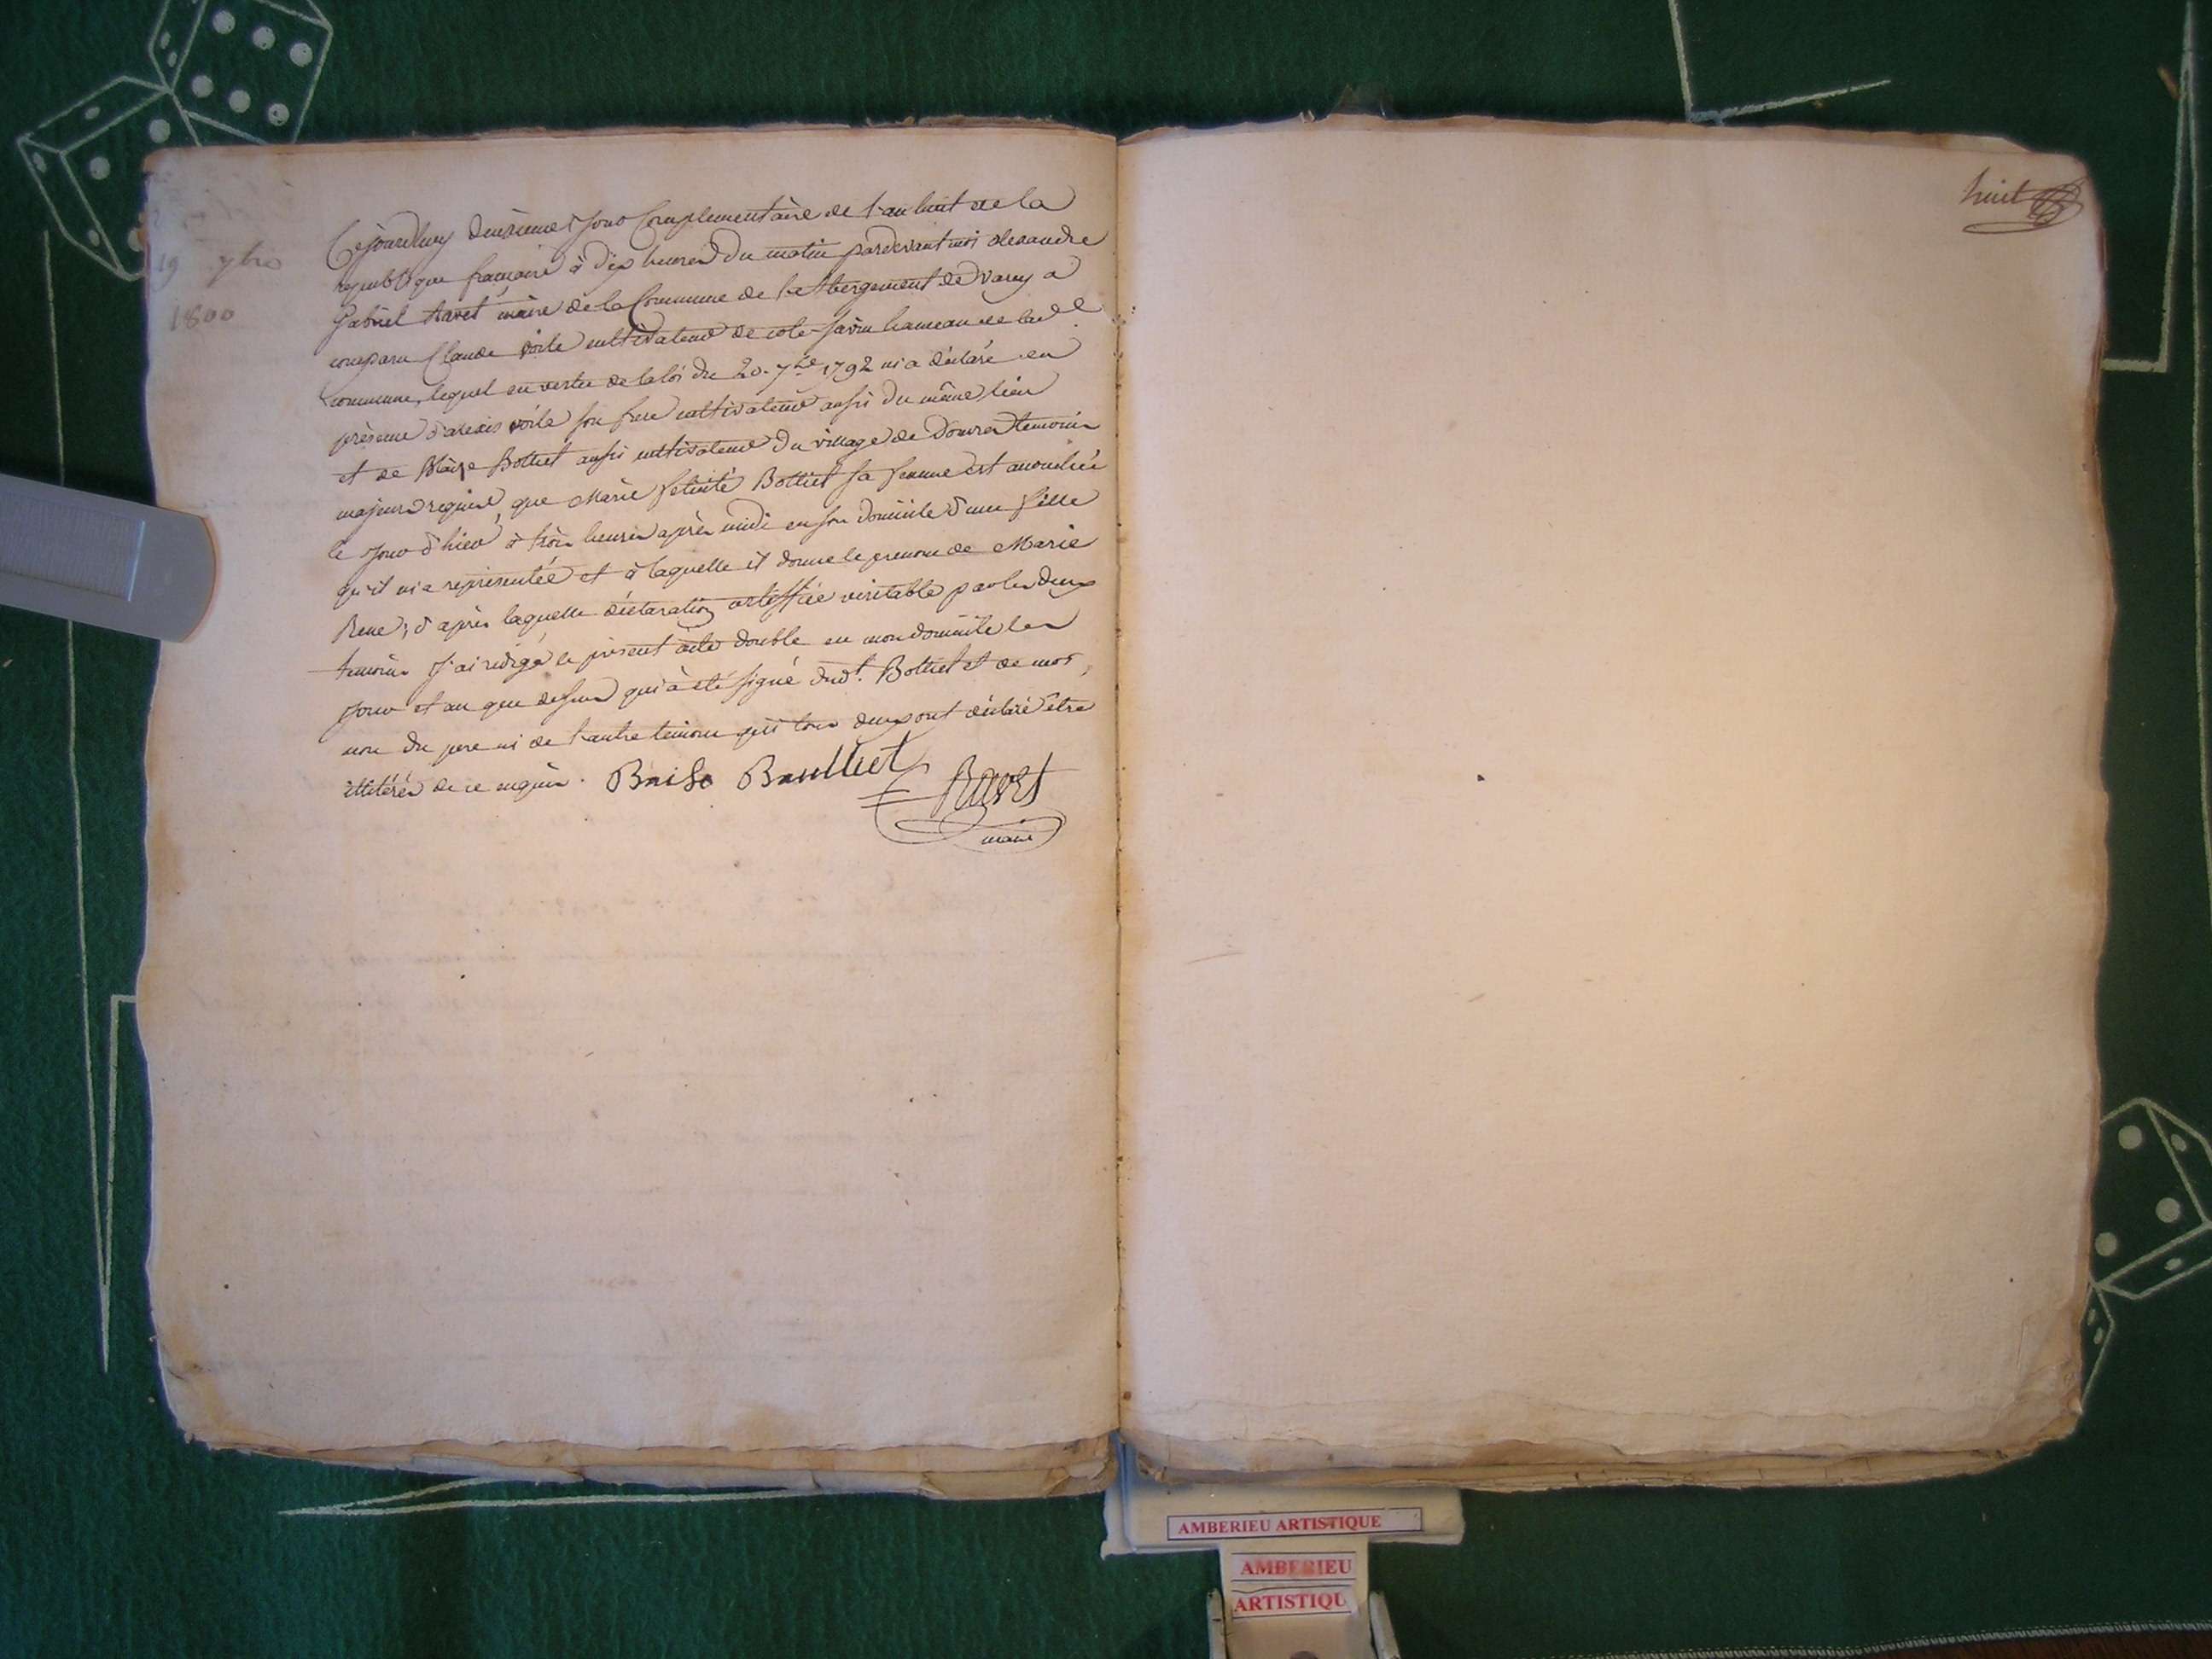 19 7bre
1800
Cejourdhuy deuxieme Jour Complementaire de l'an huit de la
republique française à dix heures du matin pardevant moi alexandre
Gabriel Ravet maire de la Commune de l'abergement de Varey a
comparu Claude voile cultivateur de cote-savin hameau de lade
commune, lequel en vertu de la loi du 20. 7bre 1792 m'a déclaré en
présence d'alexis voile son frere cultivateur aussi du même lieu
et de Blaize Bolliet aussi cultivateur du village de Douvres temoins
majeurs requis, que Marie felicité Bolliet sa femme est accouchée
le Jour d'hier à trois heures après midi en son domicile d'une fille
qu'il m'a representée et à laquelle il donne le prenom de Marie
Rene; d'après laquelle déclaration certiffiée veritable par les deux
temoins J'ai redigé le present acte double en mon domicile les
Jour et an que dessus qui à été signé dudt. Bolliet et de moi,
non du pere ni de l'autre temoin qui tous deux ont déclaré etre
illitérés de ce enquis. Blaise Baulliet
Ravet
maire
huit
AMBERIEU ARTISTIQUE
AMBERIEU
ARTISTIQU